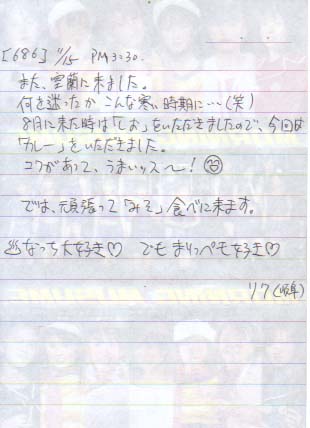 [686] 11/15 PM3:30.
また、室蘭に来ました。
何を迷ったか こんな寒い時期に…(笑)
8月に来た時は「しお」をいただきましたので、今回は
「カレー」をいただきました。
コクがあって、うまいッス〜!
では、頑張って「みそ」食べに来ます。
なっち大好き♡ でも まりっぺモ好き♡
リク(岐阜)